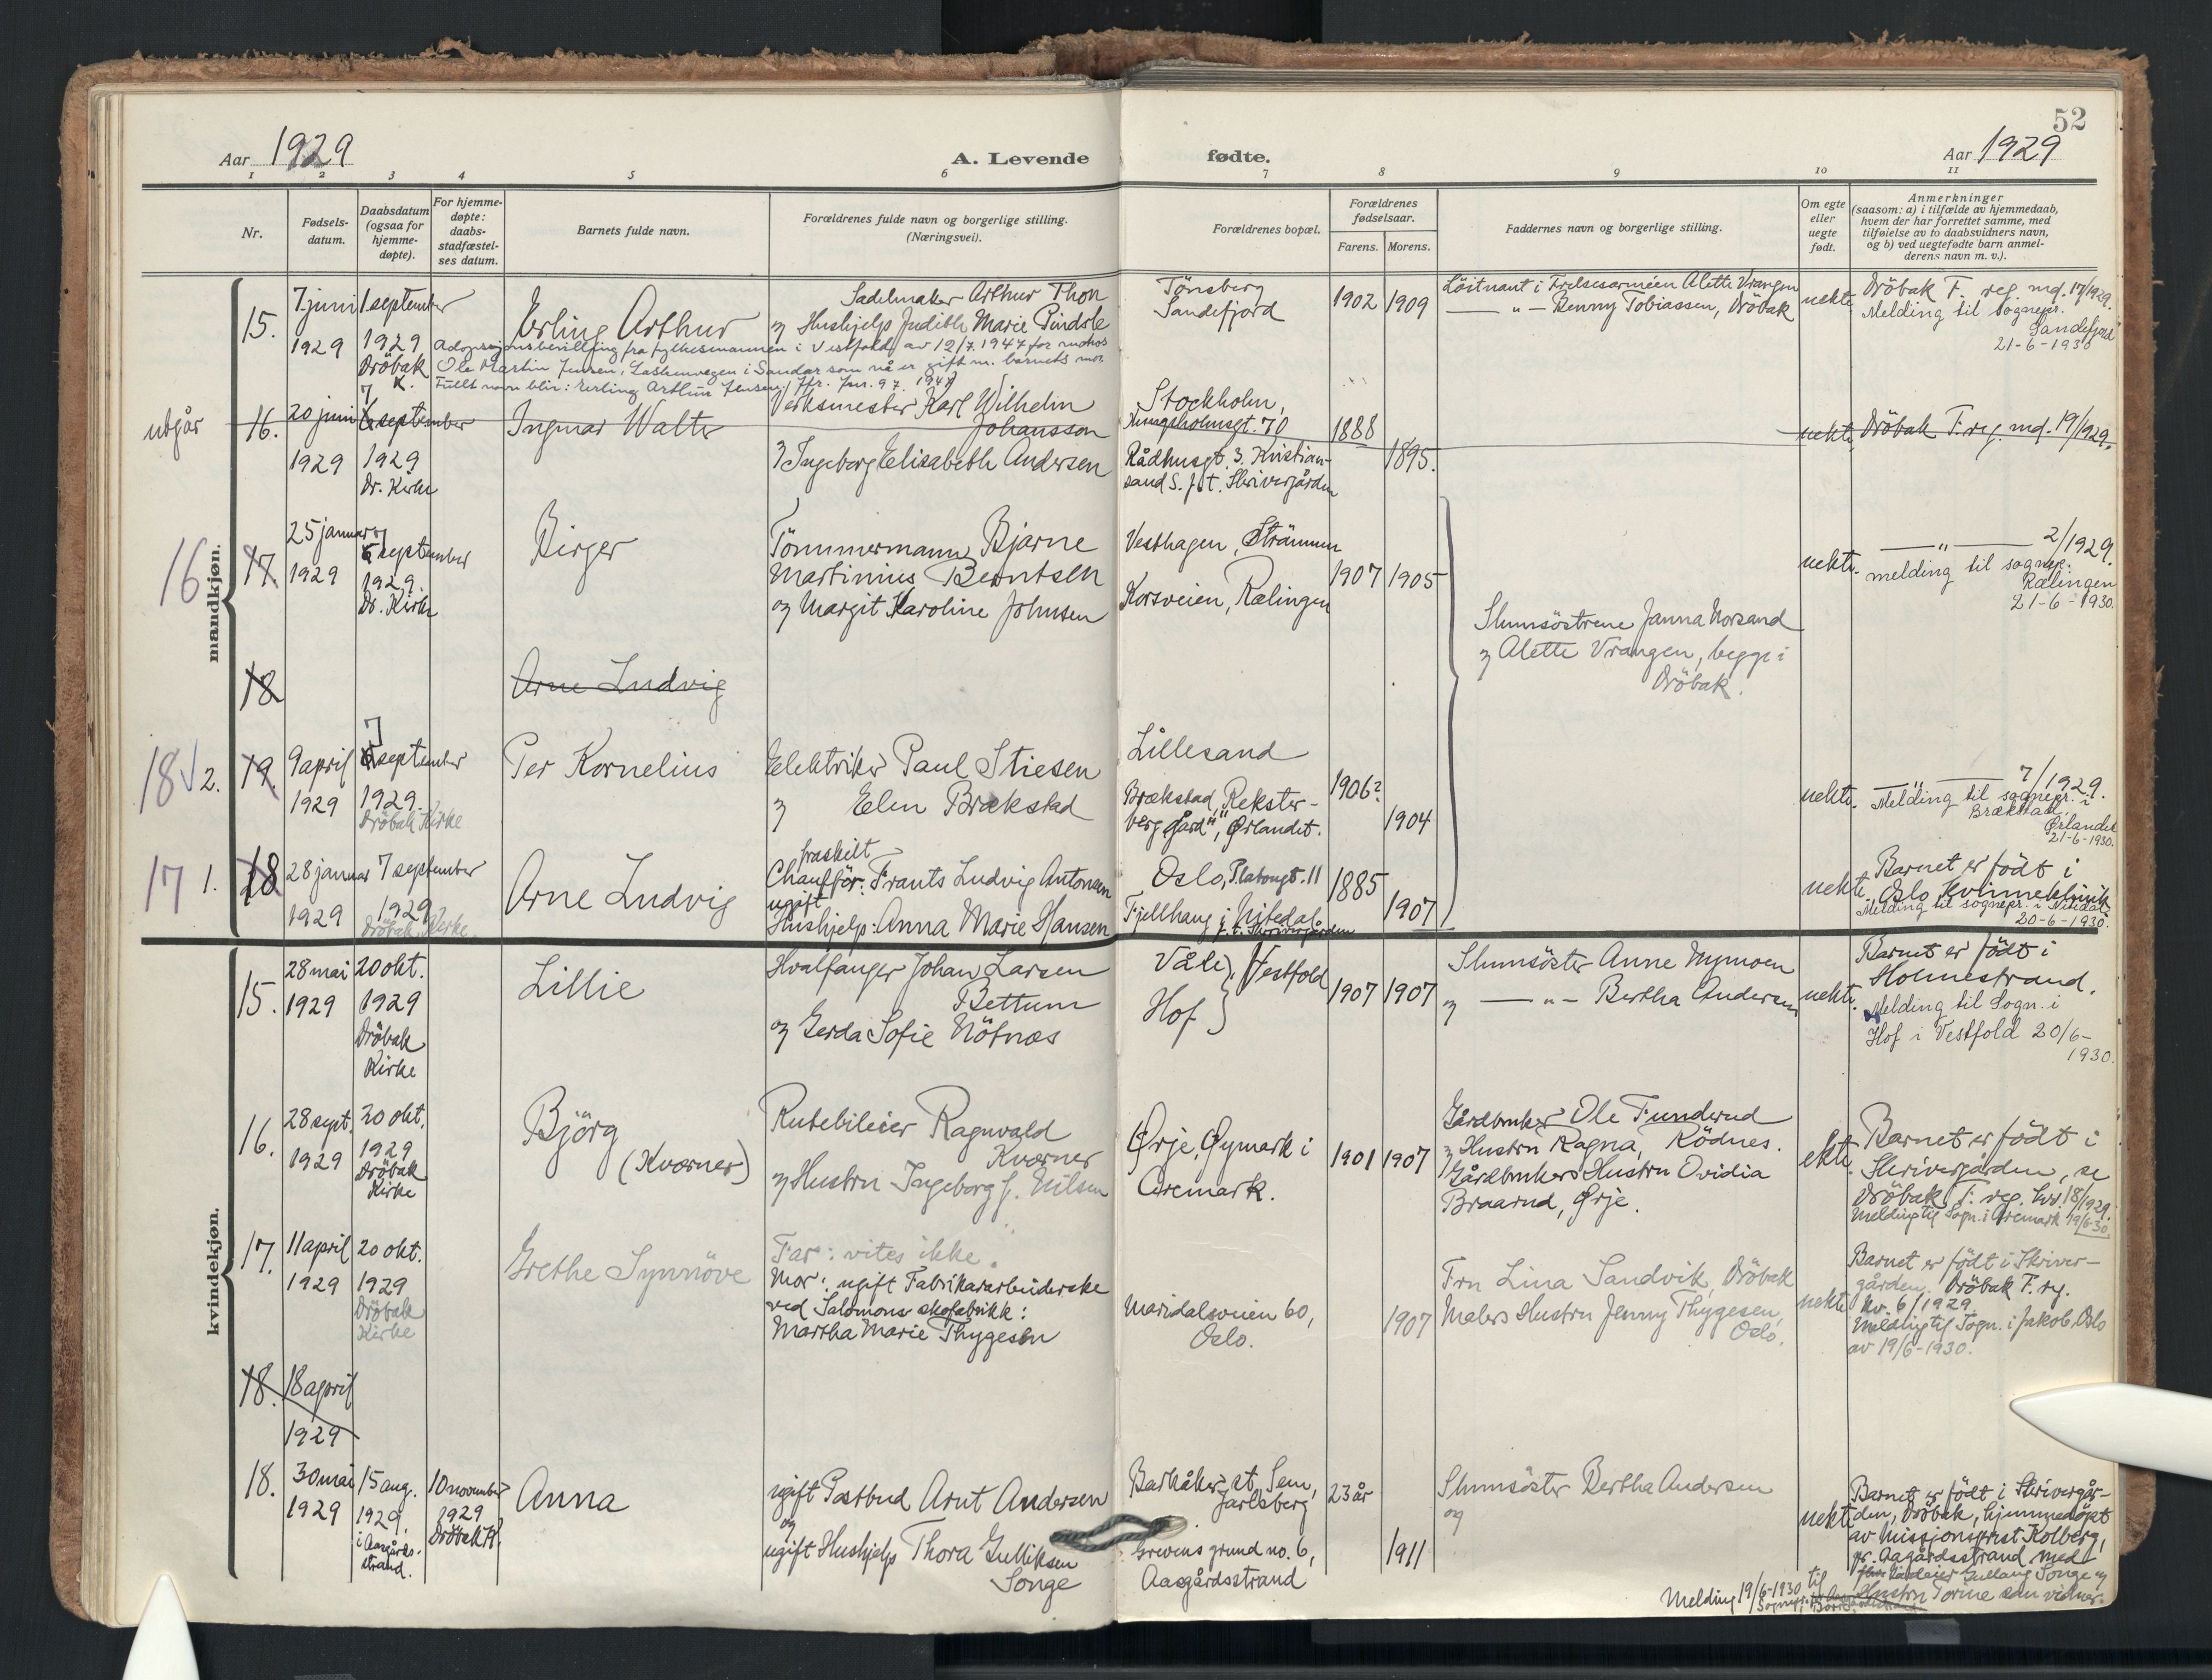 52
Aar 1929
A. Levende
fødte.
Aar 1929
1 2 3 4 5 6 7 8 9 10 11
Nr.
Fødsels-
datum.
Daabsdatum
(ogsaa for
hjemme-
døpte).
For hjemme-
døpte:
daabs-
stadfæstel-
ses datum.
Barnets fulde navn.
Forældrenes fulde navn og borgerlige stilling.
(Næringsvei).
Forældrenes bopæl.
Forældrenes
fødselsaar.
Farens. Morens.
Faddernes navn og borgerlige stilling.
Om egte
eller
uegte
født.
Anmerkninger
(saasom: a) i tilfælde av hjemmedaab,
hvem der har forrettet samme, med
tilføielse av to daabsvidners navn,
og b) ved uegtefødte barn anmel-
derens navn m. v.).
mandkjøn.
15.
7. juni
1929
1 september
1929
Dröbak
K.
Erling Arthur
Sadelmaker Arthur Thon
og Hushjelp Judith Marie Pindsle
Tönsberg
Sandefjord
1902 1909
Löitnant i Frelsesarméen Alette Vrangen
— " — Benny Tobiassen, Dröbak
uekte
Dröbak F. reg. md. 17/1929.
Melding til sognepr.
Sandefjord
21-6-1930
Adopsjonsbevilling fra fylkesmannen i Vestfold av 12/7.1947 for
Ole Martin Jensen, i Sandar som nå er gift m. barnets mor
Fullt navn blir: Erling Arthur Jensen. Jfr. Jnr. 97. 1947
utgår
16.
20 juni
1929
7
september
1929
Dr. Kirke
Ingmar Walter
Verksmester Karl Wilhelm
Johansson
og Ingeborg Elisabeth Andersen
Stockholm,
Kungsholmsgt. 70
Rådhusgt. 3. Kristian-
sand S. f. t. Skrivergården
1888
1895.
uekte
Dröbak F. reg. md. 19/1929.
16
17.
25 januar
1929
7
september
1929.
Dr. Kirke
Birger
Tömmermann Bjarne
Martinius Berntsen
og Margit Karoline Johnsen
Vesthagen, Strömmen
Korsveien, Rælingen
1907 1905
uekte.
— " — 2/1929.
melding til sognepr.
Rælingen
21-6-1930.
Slumsöstrene Janna Norsand
og Alette Vrangen, begge i
Dröbak.
18
Arne Ludvig
18 2.
19.
9 april
1929
7
september
1929.
Dröbak Kirke
Per Kornelius
Elektriker Paul Stiesen
og Elen Brækstad
Lillesand
Brækstad, Rekster-
berg gård", Ørlandet.
1906?
1904
uekte.
— " — 7/1929.
Melding til sognepr. i
Brækstad,
Ørlandet
21-6-1930.
17 1.
18
28 januar
1929
7 september
1929
Dröbak Kirke.
Arne Ludvig
fraskilt
Chauffør: Frants Ludvig Antonsen
ugift
Hushjelp: Anna Marie Hansen
Oslo, Platougt. 11
Fjellhaug i Nitedal
f. t. Skrivergården
1885
1907
uekte
Barnet er födt i
Oslo Kvinneklinik
Melding til sognepr. i Nitedal
20-6-1930.
kvindekjøn.
15.
28 mai
1929
20 okt.
1929
Dröbak
Kirke
Lillie
Hvalfanger Johan Larsen
Bettum
og Gerda Sofie Nötnæs
Våle
Hof } Vestfold
1907 1907
Slumsöster Anne Mymoen
og — " — Bertha Andersen
uekte.
Barnet er födt i
Holmestrand.
Melding til Sogn. i
Hof i Vestfold 20/6-
1930.
16.
28 sept.
1929
20 okt.
1929
Dröbak
Kirke
Björg
(Kværner)
Rutebileier Ragnvald
Kværner
og Hustru Ingeborg f. Nilsen
Ørje, Øymark i
Aremark.
1901 1907
Gårdbruker Ole Funderud
og Hustru Ragna, Rödnes.
Gårdbrukers Hustru Ovidia
Braarud, Ørje.
ekte
Barnet er födt i
Skrivergården, se
Dröbak F. reg. kv. 18/1929.
Melding til Sogn. i Aremark 19/6-30.
17.
11 april
1929
20 okt.
1929
Dröbak
Kirke
Grethe Synnöve
Far: vites ikke.
Mor: ugift Fabrikararbeiderske
ved Salomons skofabrikk:
Martha Marie Thygesen
Maridalsveien 60,
Oslo.
1907
Fru Lina Sandvik, Dröbak
Malers Hustru Jenny Thygesen,
Oslo.
uekte
Barnet er födt i Skriver-
gården. Dröbak F. reg.
kv. 6/1929.
Melding til Sogn. i Jakob, Oslo
av 19/6-1930.
18.
18 april
1929
18.
30 mai
1929
15 aug.
1929.
i Aasgårds-
strand.
10 november
1929
Dröbak K.
Anna
ugift Postbud Arnt Andersen
og
ugift Hushjelp Thora Gulliksen
Songe
Barkåker st. Sem,
Jarlsberg
Grevens grund no. 6,
Aasgårdsstrand
23 år
1911
Slumsöster Bertha Andersen
og
uekte
Barnet er födt i Skrivergår-
den, Dröbak, hjemmedöpt
av Missionsprest Kolberg,
pr. Aagårdsstrand med
Songe og
Hustru Torine som vidner.
Melding 19/6-1930 til
Sognepr. i